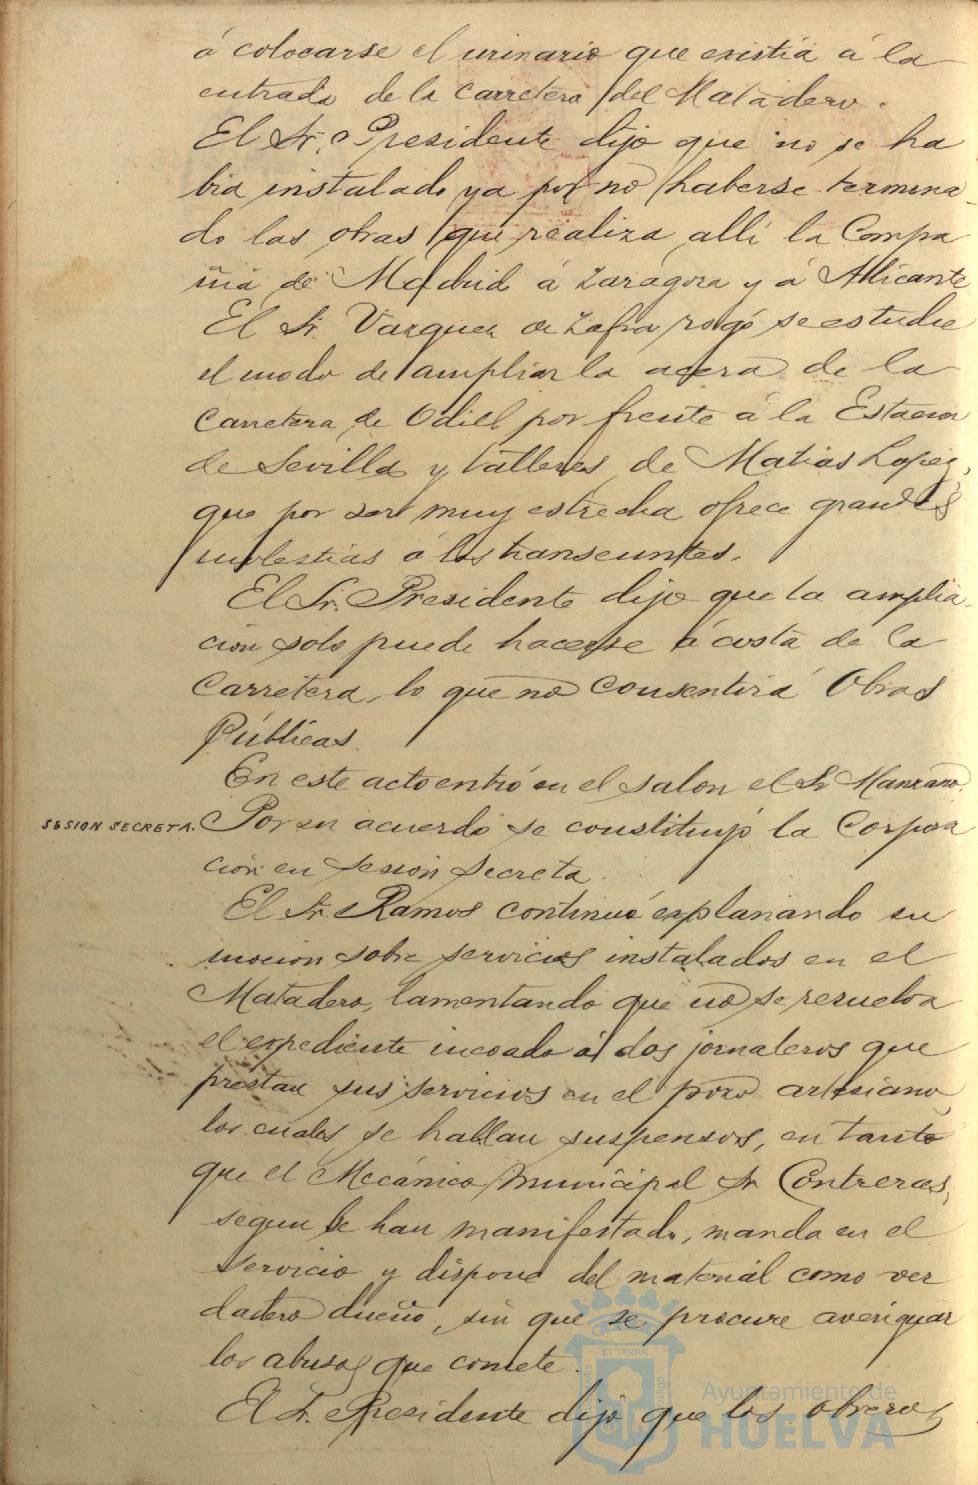 á colocarse el urinario que existia á la
entrada de la carretera del Matadero.
El Sr. Presidente dijo que no se ha
bia instalado ya por no haberse termina-
do las obras que realiza alli la Compa
ñia de Madrid á Zaragoza y á Alicante
El Sr. Vazquez de Zafra rogó se estudie
el modo de ampliar la acera de la
carretera de Odiel por frente á la Estacion
de Sevilla y talleres de Matias Lopez,
que por ser muy estrecha ofrece grandes
molestias á los transeuntes.
El Sr. Presidente dijo que la amplia-
cion solo puede hacerse á costa de la
carretera, lo que no consentirá Obras
Públicas.
En este acto entró en el salon el Sr Manzano.
SESION SECRETA.
Por su acuerdo se constituyó la Corpora
cion en sesion secreta.
El Sr. Ramos continuó explanando su
mocion sobre servicios instalados en el
Matadero, lamentando que no se resuelva
el expediente incoado á dos jornaleros que
prestan sus servicios en el pozo artesiano,
los cuales se hallan suspensos, en tanto
que el Mecánico municipal Sr Contreras,
segun le han manifestado, manda en el
servicio y dispone del material como ver
dadero dueño, sin que se procure averiguar
los abusos que comete.
El Sr. Presidente dijo que los obreros
ET TERRA
Ayuntamiento de
HUELVA